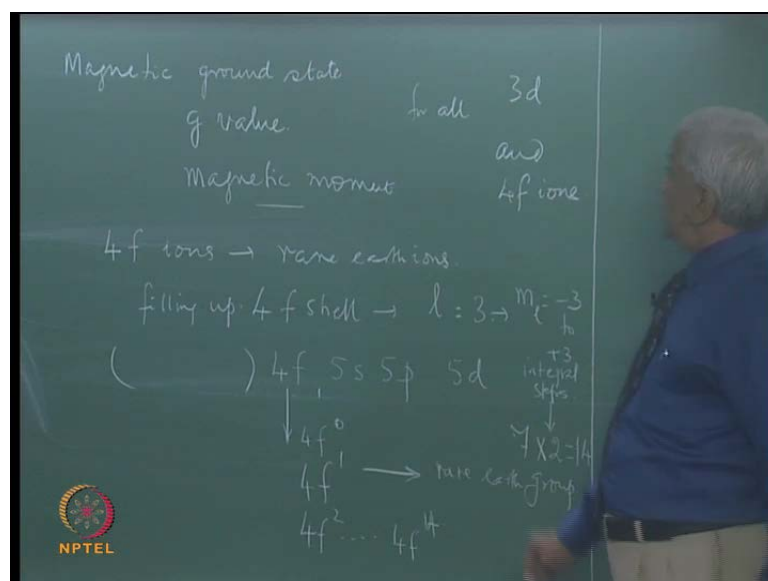 Magnetic ground state
g value.
Magnetic moment
for all 3d
and
4f ions
4f ions → rare earth ions.
filling up 4f shell → l : 3 → mₗ = -3
to
+3
integral
steps.
( ) 4f, 5s 5p 5d
7 x 2 = 14
4f⁰
4f¹ → rare earth group
4f² .... 4f¹⁴
NPTEL